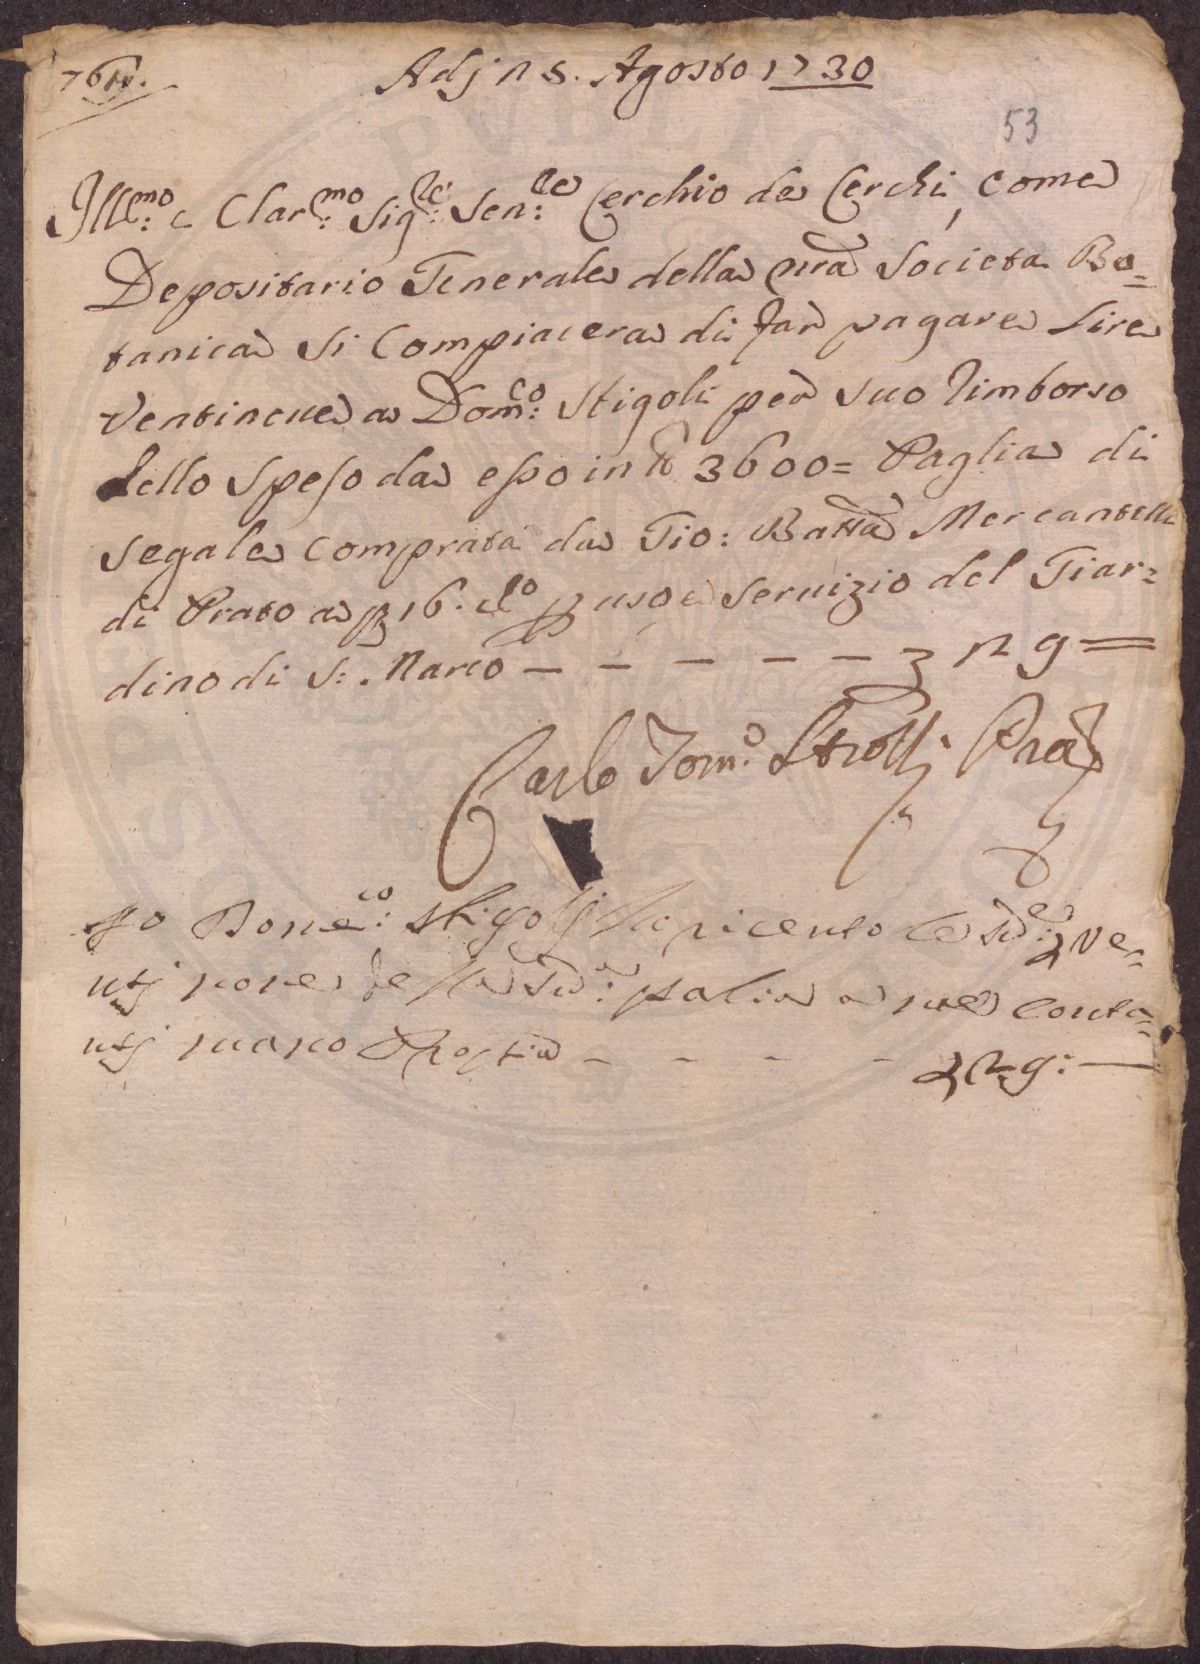 Adj 25. Agosto 1730
53
Ill:mo e Clar:mo Sig:re Sen:re Cerchio de Cerchi, come
Depositario Generale della nra Societa Bo=
tanica si compiacera di far pagare Lire
Ventinove a Dom:co Stigoli per suo rimborso
dello speso da esso in lb 3600= Paglia di
segale comprata da Gio: Batta Mercantelli
di Prato a 16. p uso e servizio del Giar=
dino di S: Marco – – – – – – 29 =
Carlo Tom.o Strozzi
Io Domeco: Stigolj ho riceuto le sude:
ntj nove de la sud: palia a me conta=
ntj mano Propia – – – – 29:—